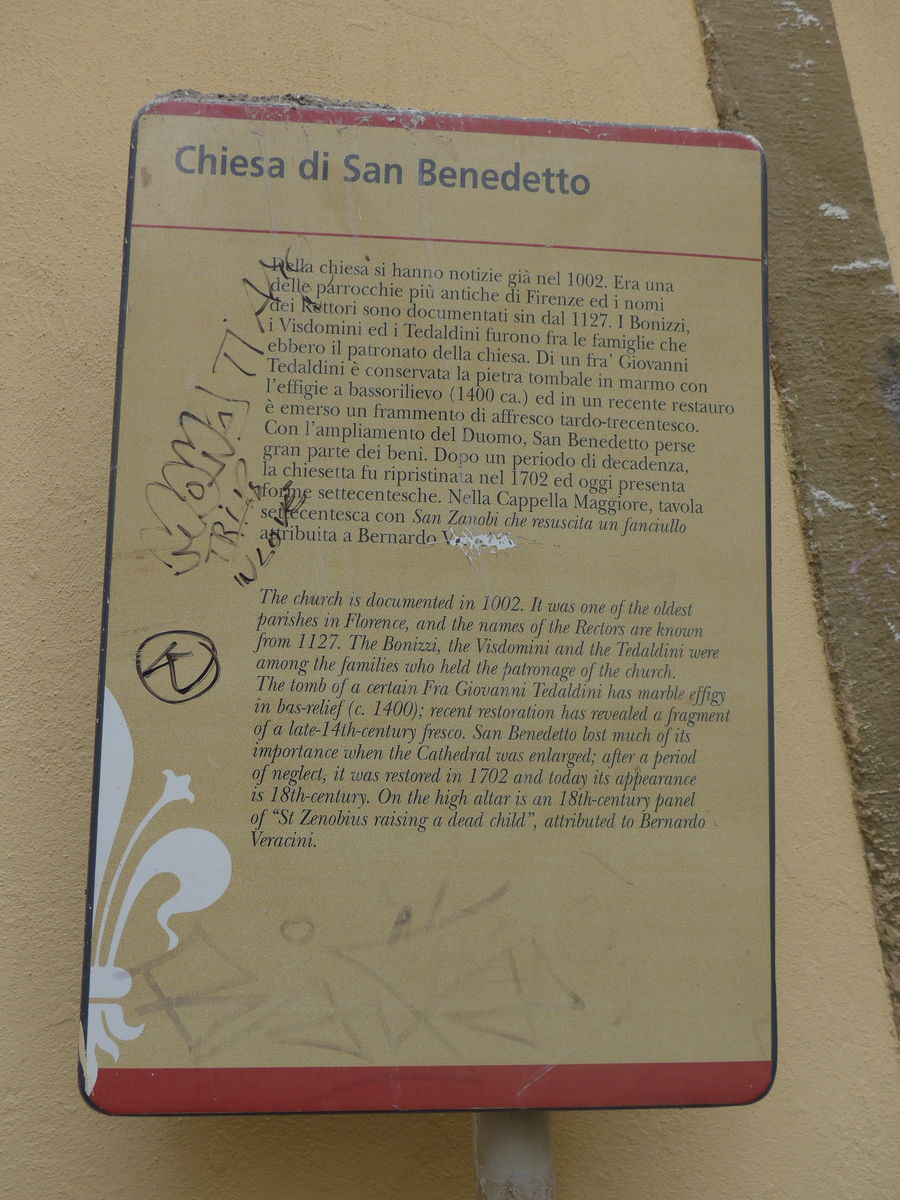 Chiesa di San Benedetto
Della chiesa si hanno notizie già nel 1002. Era una
delle parrocchie più antiche di Firenze ed i nomi
dei Rettori sono documentati sin dal 1127. I Bonizzi,
i Visdomini ed i Tedaldini furono fra le famiglie che
ebbero il patronato della chiesa. Di un fra’ Giovanni
Tedaldini è conservata la pietra tombale in marmo con
l’effigie a bassorilievo (1400 ca.) ed in un recente restauro
è emerso un frammento di affresco tardo-trecentesco.
Con l’ampliamento del Duomo, San Benedetto perse
gran parte dei beni. Dopo un periodo di decadenza,
la chiesetta fu ripristinata nel 1702 ed oggi presenta
forme settecentesche. Nella Cappella Maggiore, tavola
settecentesca con San Zanobi che resuscita un fanciullo
attribuita a Bernardo
The church is documented in 1002. It was one of the oldest
parishes in Florence, and the names of the Rectors are known
from 1127. The Bonizzi, the Visdomini and the Tedaldini were
among the families who held the patronage of the church.
The tomb of a certain Fra Giovanni Tedaldini has marble effigy
in bas-relief (c. 1400); recent restoration has revealed a fragment
of a late-14th-century fresco. San Benedetto lost much of its
importance when the Cathedral was enlarged; after a period
of neglect, it was restored in 1702 and today its appearance
is 18th-century. On the high altar is an 18th-century panel
of “St Zenobius raising a dead child”, attributed to Bernardo
Veracini.
IN LOVE